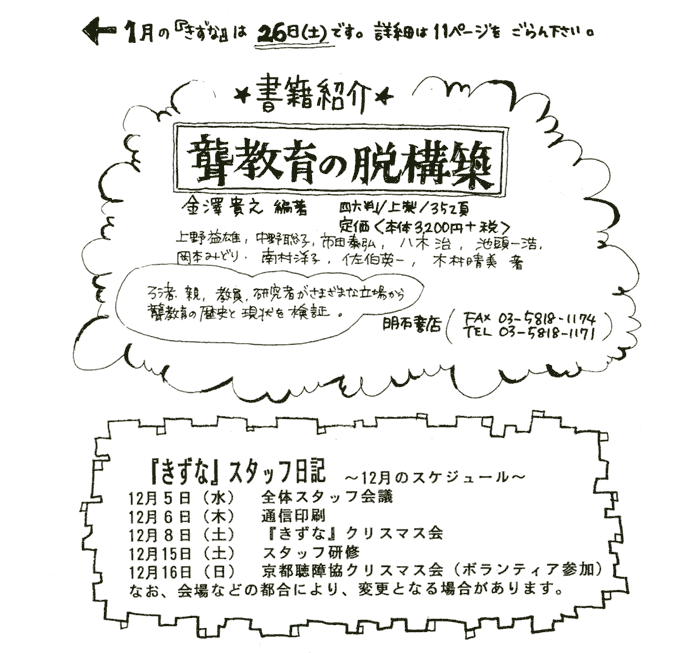 1月の『きずな』は 26日(土)です。詳細は11ページを ごらん下さい。
★書籍紹介★
聾教育の脱構築
金澤貴之 編著 四六判/上製/352頁
定価<本体3,200円+税>
上野益雄, 中野聡子, 市田泰弘, 八木治, 池頭一浩,
岡本みどり, 南村洋子, 佐伯英一, 木村晴美 著
ろう者, 親, 教員, 研究者がさまざまな立場から
聾教育の歴史と現状を検証。
明石書店 (FAX 03-5818-1174
TEL 03-5818-1171)
『きずな』スタッフ日記 ～12月のスケジュール～
12月5日(水) 全体スタッフ会議
12月6日(木) 通信印刷
12月8日(土) 『きずな』クリスマス会
12月15日(土) スタッフ研修
12月16日(日) 京都聴障協クリスマス会(ボランティア参加)
なお、会場などの都合により、変更となる場合があります。